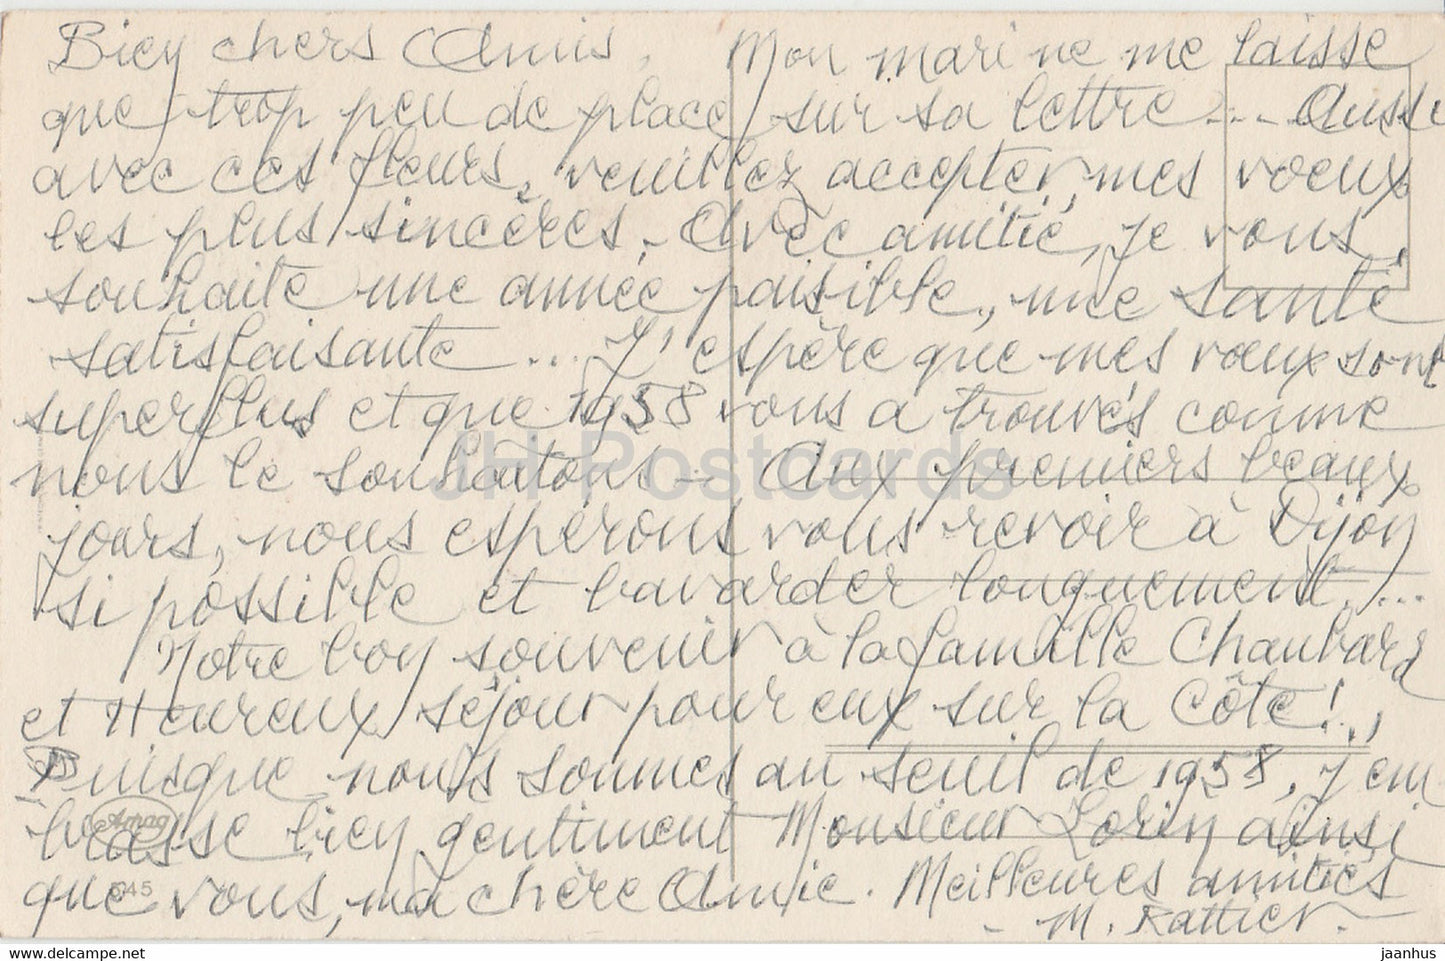 Bien chers Amis. Mon mari ne me laisse
que trop peu de place sur sa lettre... Aussi
avec ces fleurs, veuillez accepter, mes voeux
les plus sincères. Avec amitié, je vous
souhaite une année paisible, une santé
satisfaisante... J'espère que mes vœux sont
superflus et que 1958 vous a trouvés comme
nous le souhaitons - Aux premiers beaux
jours, nous espérons vous revoir à Dijon
si possible et bavarder longuement...
Notre bon souvenir à la famille Chaubard
et Heureux séjour pour eux sur la Côte!..
Puisque nous sommes au seuil de 1958, j'em
brasse bien gentiment Monsieur Lorin ainsi
que vous, ma chère Amie. Meilleures amitiés
- M. Rattier.
Amag
645
JH Postcards
www.delcampe.net
jaanhus